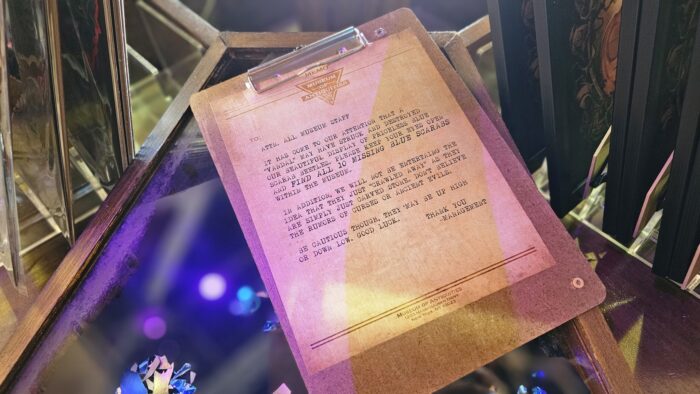 MUSEUM
TO:
ATTN. ALL MUSEUM STAFF
IT HAS COME TO OUR ATTENTION THAT A
"VANDAL" MAY HAVE STRUCK AND DESTROYED
OUR BEAUTIFUL DISPLAY OF PRICELESS BLUE
SCARAB BEETLES. PLEASE KEEP YOUR EYES OPEN
AND FIND ALL 10 MISSING BLUE SCARABS
WITHIN THE MUSEUM.
IN ADDITION, WE WILL NOT BE ENTERTAINING THE
IDEA THAT THEY JUST "CRAWLED AWAY" AS THEY
ARE SIMPLY JUST CARVED STONE. DON'T BELIEVE
THE RUMORS OF CURSED OR ANCIENT EVILS.
BE CAUTIOUS THOUGH, THEY MAY BE UP HIGH
OR DOWN LOW. GOOD LUCK.
THANK YOU
-MANAGEMENT
MUSEUM OF ANTIQUITIES